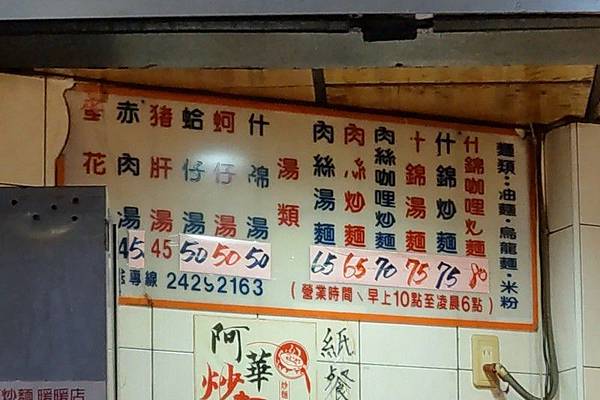 麵類：油麵·烏龍麵·米粉
什錦咖哩炒麵 80
什錦炒麵 75
什錦湯麵 75
肉絲咖哩炒麵 70
肉絲炒麵 65
肉絲湯麵 65
湯類
什錦湯 50
蚵仔湯 50
蛤仔湯 50
猪肝湯 45
赤肉湯 45
花
(營業時間、早上10點至凌晨6點)
專線
阿華
炒麵
紙餐
炒麵 暖暖店